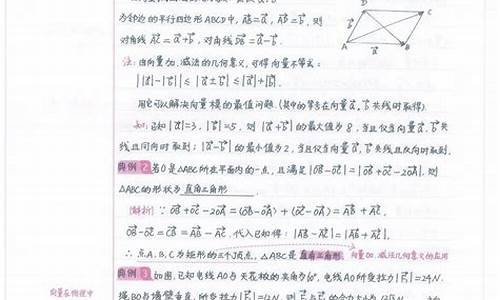 为邻边的平行四边形ABCD中, AB=a, AD=b, 则
对角线 AC=a+b, 对角线 DB=a-b.
D
C
b
A
a
B
注: 由向量加、减法的几何意义, 可得向量不等式:
||a|-|b|| ≤ |a±b| ≤ |a|+|b|.
用它可以解决向量模的最值问题. (其中的等号在向量a、b共线时取得).
如: 已知|a|=3, |b|=5, 则|a+b|的最大值为8, 当且仅当向量a、b共
线且同向时取到; |a-b|的最小值为2, 当且仅当向量a、b共线且同向时取到.
典例2 若O是△ABC所在平面内的一点, 且满足|OB-OC|=|OB+OC-2OA|, 则
△ABC的形状为 直角三角形
[解析] ∵ OB+OC-2OA=(OB-OA)+(OC-OA)=AB+AC,
OB-OC=CB=AB-AC. 代入已知得: |AB-AC|=|AB+AC|.
∴ 点A、B、C为矩形的三个顶点, △ABC是 直角三角形. 向量加、减法几何意义的应用
典例3 如图, 已知电线AO与天花板的夹角为60°, 电线AO所受拉力|F₁|=24N.
向量在物理中
绳BO与墙壁垂直, 所受拉力|F₂|=12N. 则